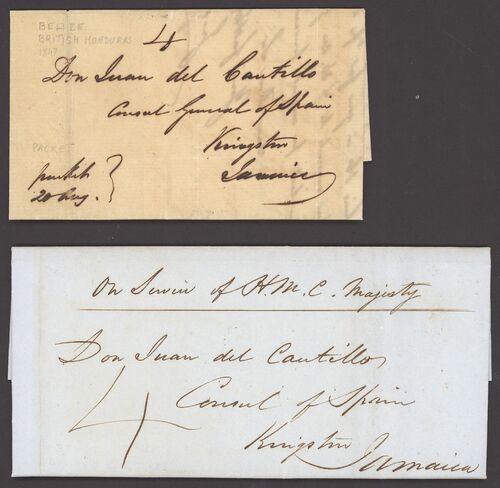 BELIZE
BRITISH HONDURAS
1847
4
Don Juan del Castillo
Consul General of Spain
Kingston
Jamaica
PACKET
packet
20 Aug.
On Service of H.M.C. Majesty
Don Juan del Castillo
4
Consul of Spain
Kingston
Jamaica